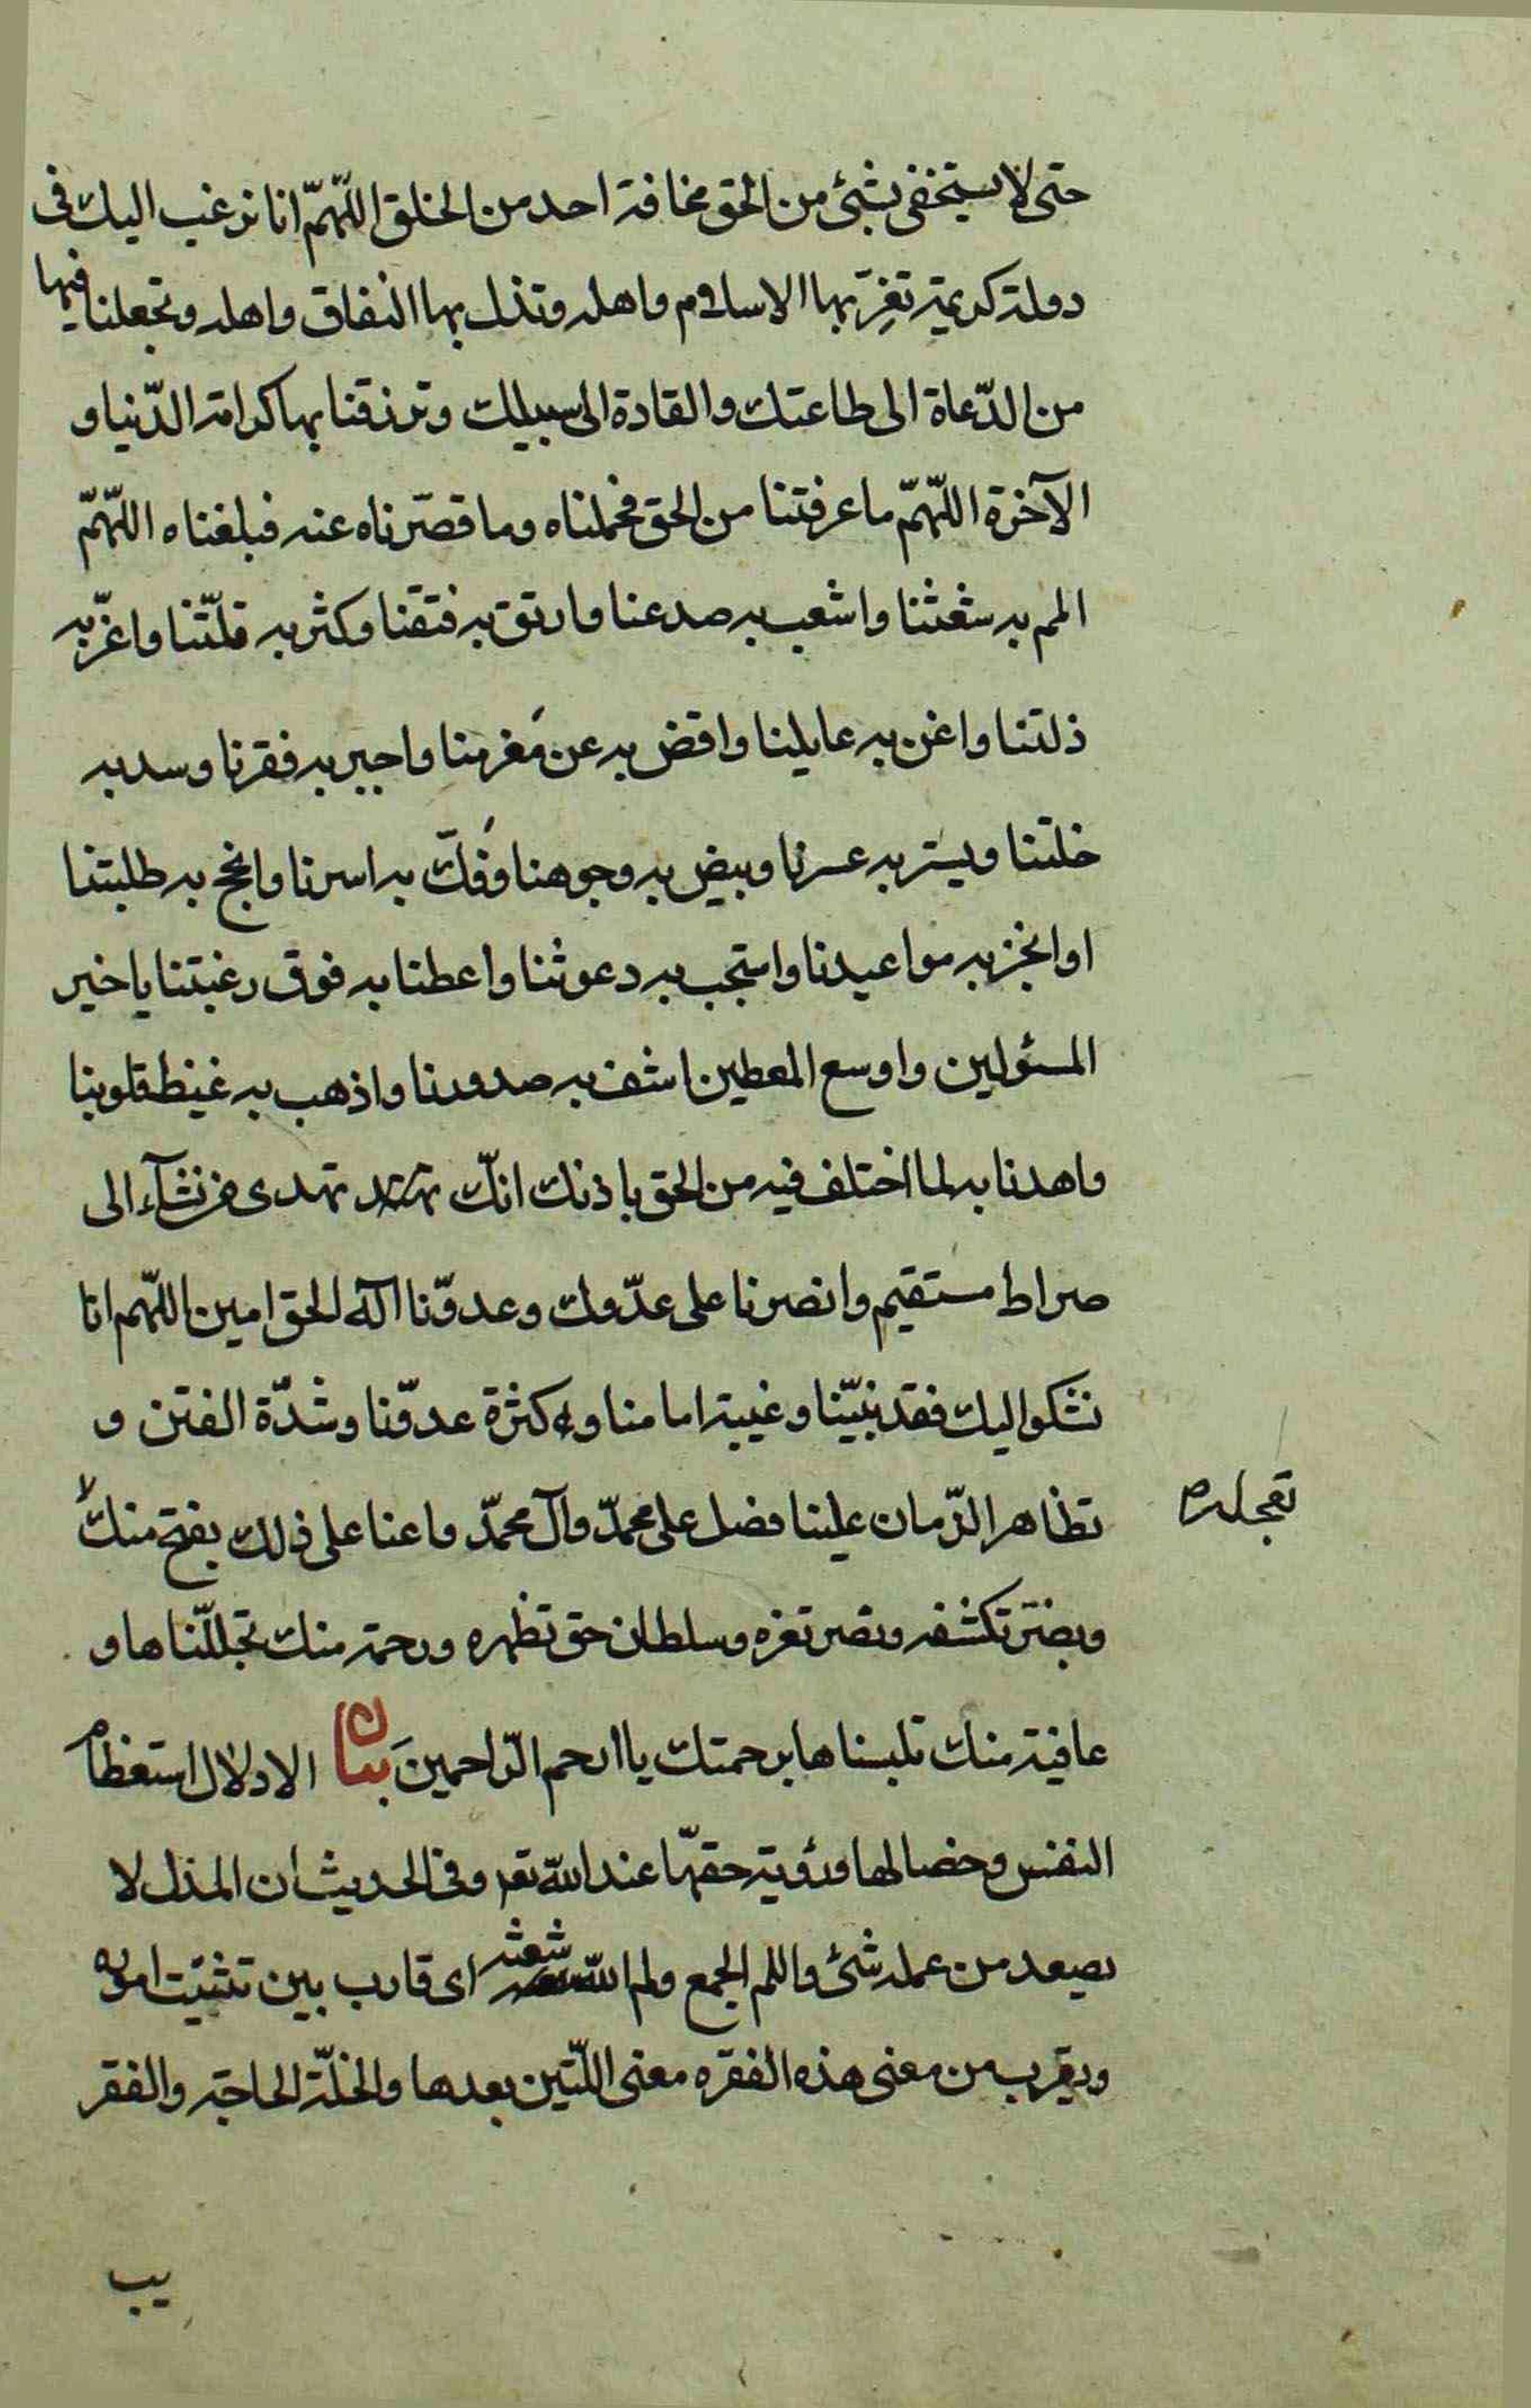 حتى لا يستخفى بشئ من الحق مخافة احد من الخلق اللّهمّ انا نرغب اليك فى
دولة كريمة تعزّ بها الاسلام واهله وتذل بها النفاق واهله وتجعلنا فيها
من الدّعاة الى طاعتك والقادة الى سبيلك وترزقنا بها كرامة الدّنيا و
الآخرة اللّهمّ ما عرفتنا من الحق فحملناه وما قصّرناه عنه فبلغناه اللّهمّ
المم به شعثنا واشعب به صدعنا وارتق به فتقنا وكثر به قلّتنا واعزّ به
ذلتنا واغن به عايلنا واقض به عن مَغرمنا واجبر به فقرنا وسد به
خلتنا ويسّر به عسرنا وبيض به وجوهنا وفُكّ به اسرنا وانجح به طلبتنا
اوانجز به مواعيدنا واستجب به دعوتنا واعطنا به فوق رغبتنا يا خير
المسئولين واوسع المعطين اشف به صدورنا واذهب به غيظ قلوبنا
واهدنا به لما اختلف فيه من الحق باذنك انّك تهدى من تشآء الى
صراط مستقيم وانصرنا على عدّوك وعدوّنا اله الحق امين اللّهم انا
نشكو اليك فقد نبيّنا وغيبة امامنا و كثرة عدوّنا وشدّة الفتن و
تظاهر الزّمان علينا فصل على محمّد وآل محمّد واعنا على ذلك بفتح منك
تعجله
وبضرّ تكشفه ونصر تعزه وسلطان حق تظهره ورحمة منك تجللّناها و
عافية منك تلبسناها برحمتك يا ارحم الرّاحمينَ بيان الادلال استعظام
النفس وخصالها ورؤية حقهّا عند اللّه تعر وفى الحديث ان المذل لا
يصعد من عمله شئ واللم الجمع ولم اللّه شعثه اى قارب بين تشتيت اموره
ويقرب من معنى هذه الفقره معنى اللّتين بعدها والخلّة الحاجة والفقر
يب